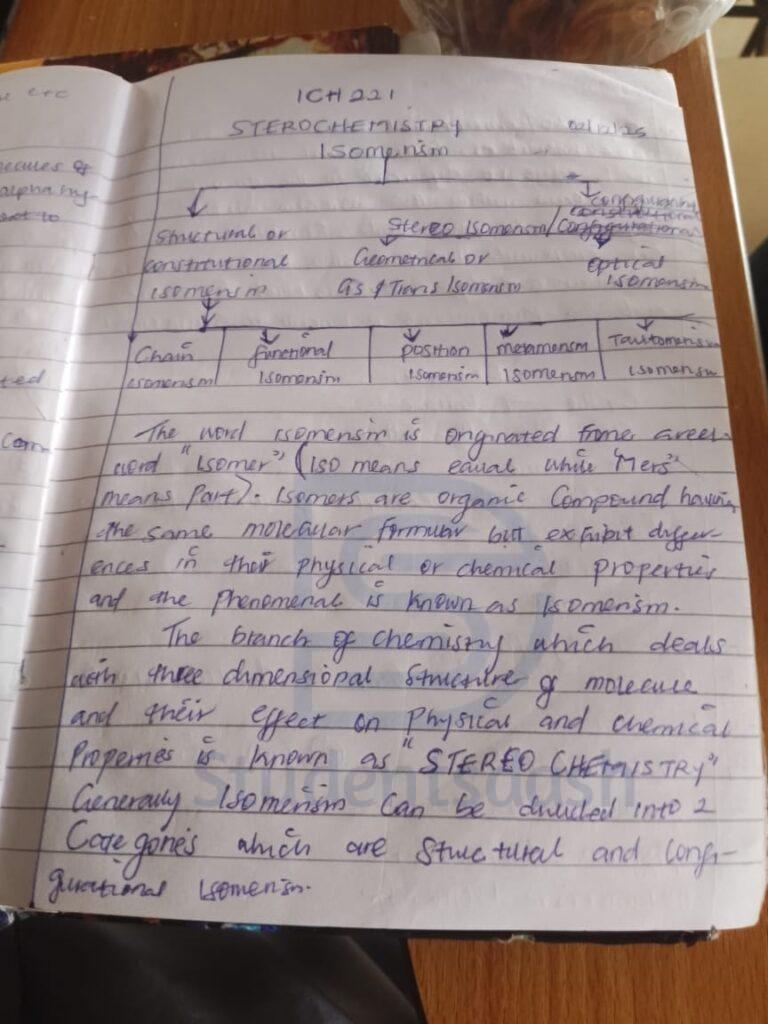 e etc
ICH 221
STEROCHEMISTRY
02/12/25
Isomerism
ecules of
alpha hy-
Structural or
constitutional
isomerism
Stereo Isomerism/Configurational
Geometrical or
Cis & Trans Isomerism
optical
Isomerism
Chain
isomerism
functional
Isomerism
position
Isomerism
metamerism
Isomerism
Tautomerism
Isomerism
ted
Com
The word isomerism is originated from Greek
word "Isomer" (Iso means equal while "Mers"
means Part). Isomers are organic Compound having
the same molecular formular but exhibit differ-
ences in their physical or chemical properties
and the Phenomenal is known as Isomerism.
The branch of chemistry which deals
with three dimensional Structure of molecule
and their effect on Physical and chemical
Properties is known as "STEREO CHEMISTRY"
Studentsdash
Generally Isomerism Can be divided into 2
Categories which are Structural and Confi-
gurational isomerism.